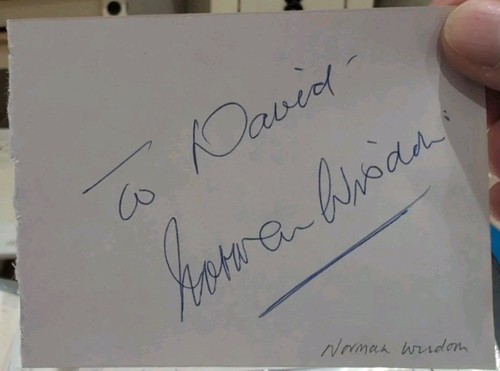 To David
Norman Wisdom
Norman Wisdom